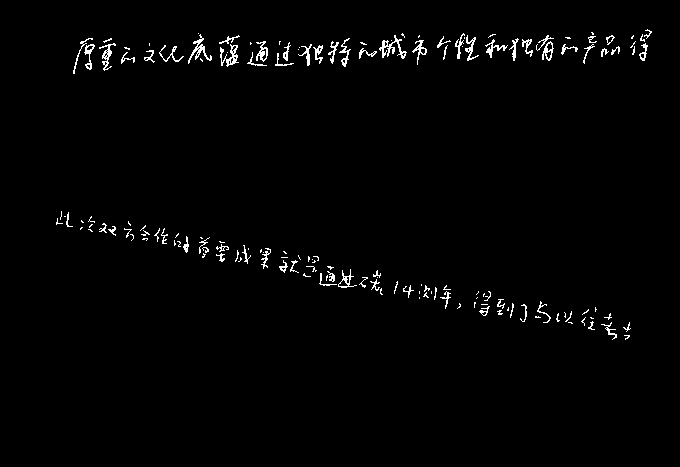 厚重的文化底蕴通过独特的城市个性和独有的产品得
此次双方合作的首要成果就是通过碳14测年，得到了与以往考古